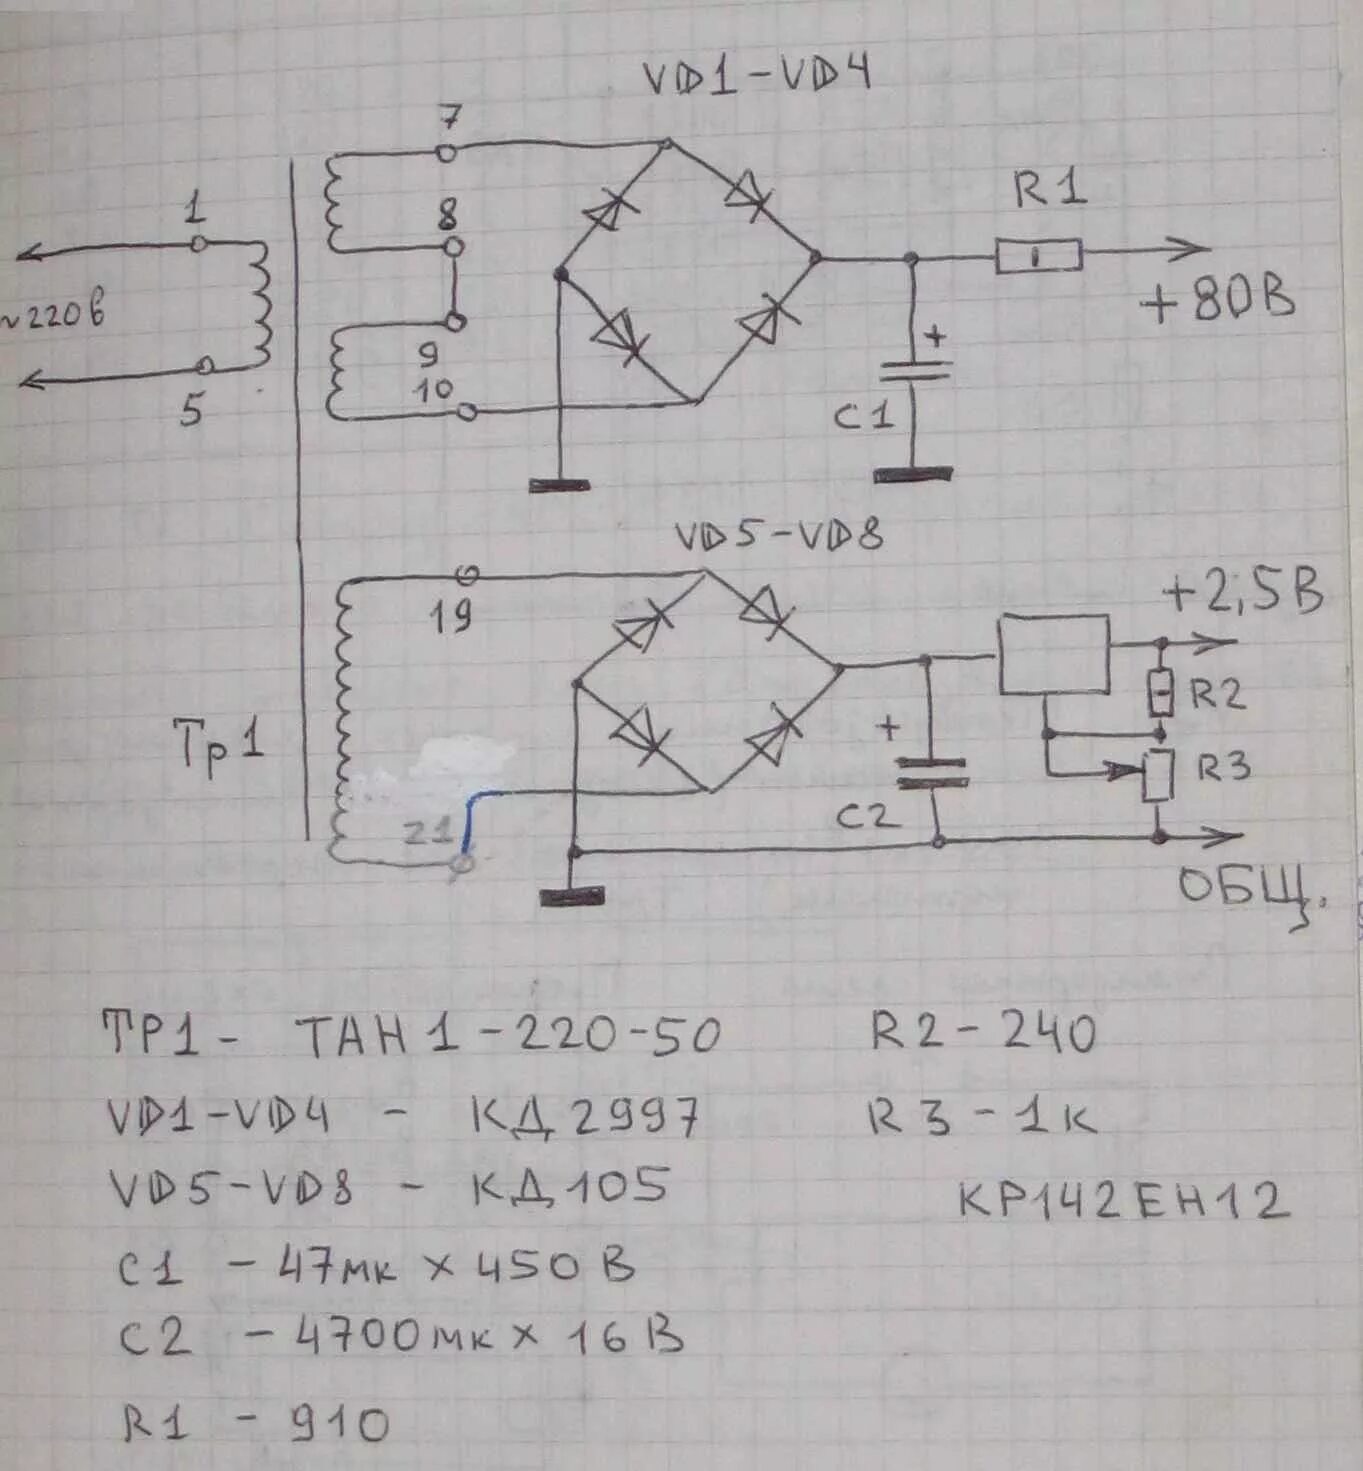 VD1-VD4
7
1
8
R1
~220В
+80В
+
9
10
5
C1
VD5-VD8
+2,5В
19
R2
Тр1
+
R3
21
C2
ОБЩ.
ТР1- ТАН1-220-50
R2-240
VD1-VD4 - КД2997
R3-1К
VD5-VD8 - КД105
КР142ЕН12
C1 - 47мк х 450В
C2 - 4700мк х 16В
R1 - 910